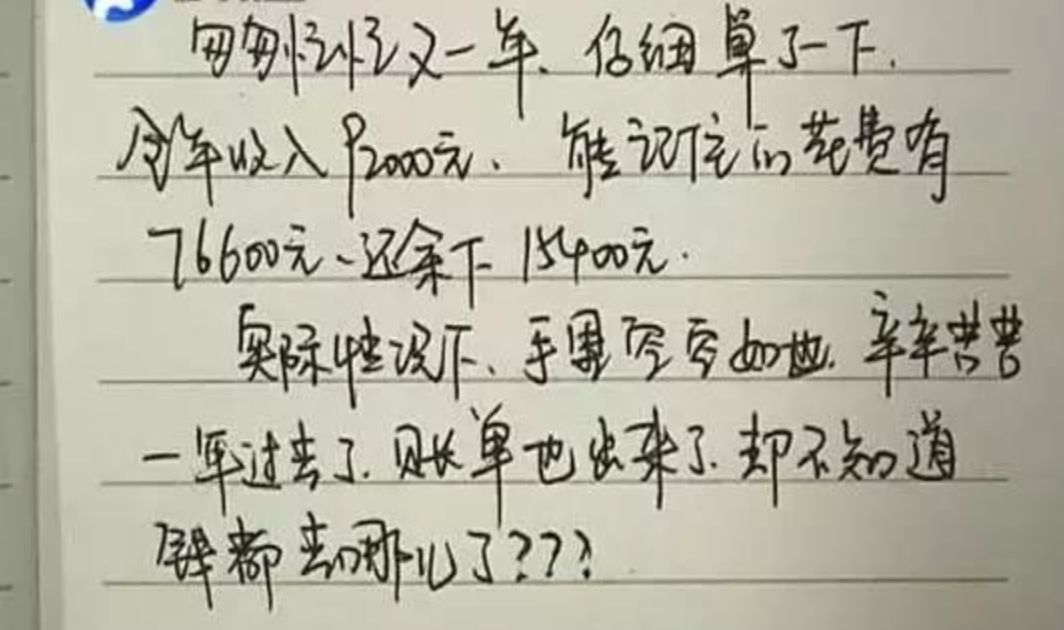 匆匆忙忙又一年、仔细算了一下.
今年收入92000元、能记住的花费有
76600元、还余下15400元.
实际情况下、手里空空如也.辛辛苦苦
一年过去了.账单也出来了.却不知道
钱都去哪儿了???